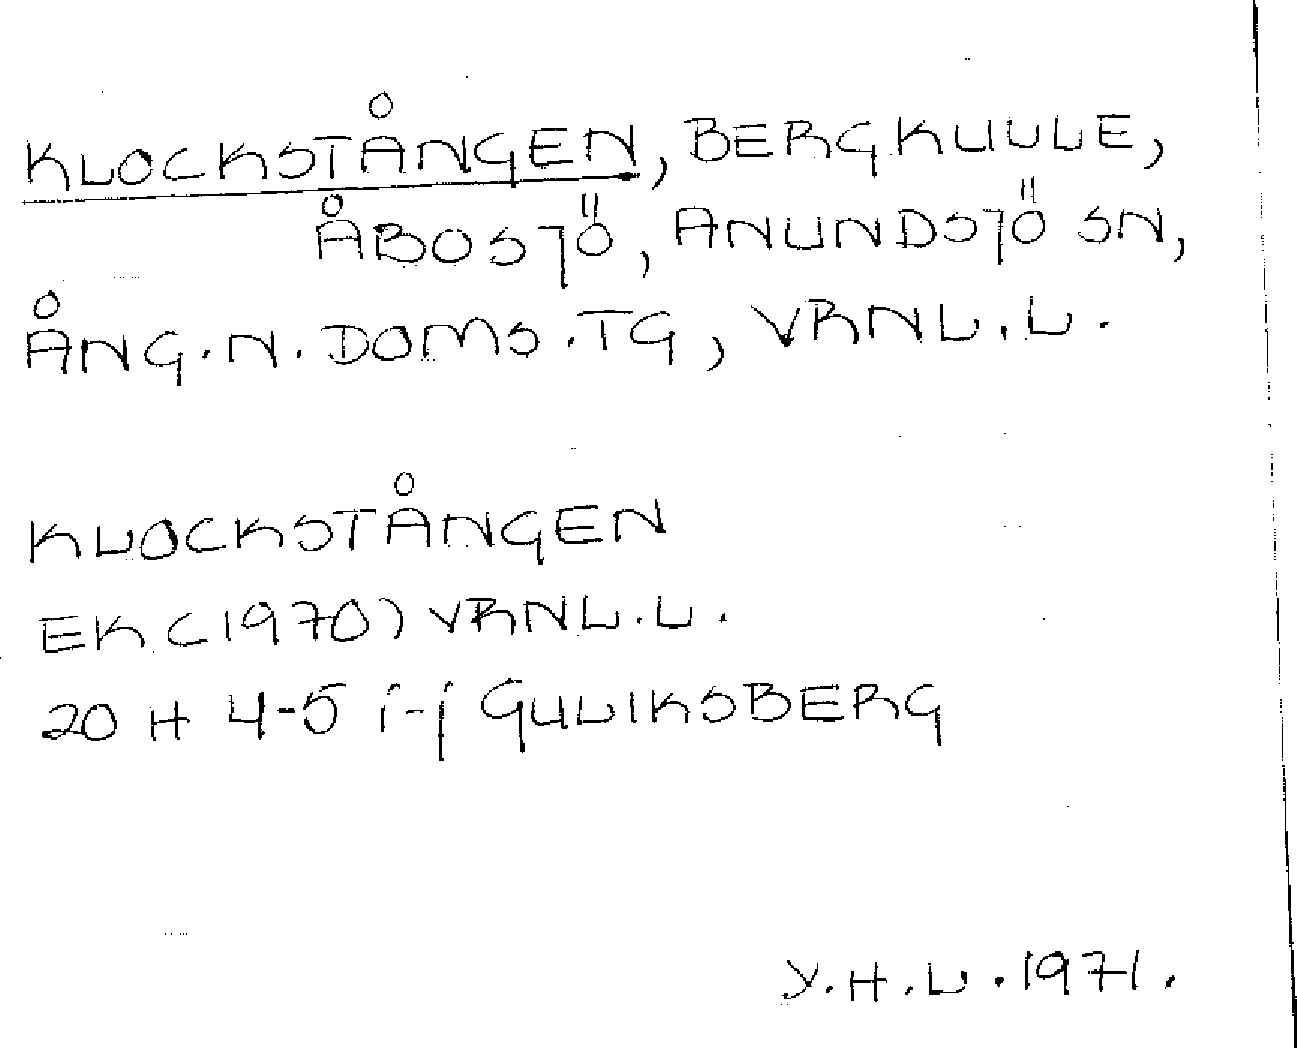 KLOCKSTÅNGEN, BERGKULLE,
ÅBOSJÖ, ANUNDSJÖ SN,
ÅNG. N. DOMS. TG, VRNL. L.
KLOCKSTÅNGEN
EK (1970) VRNL. L.
20 H 4-5 i-j GULIKSBERG
Y. H. L. 1971.